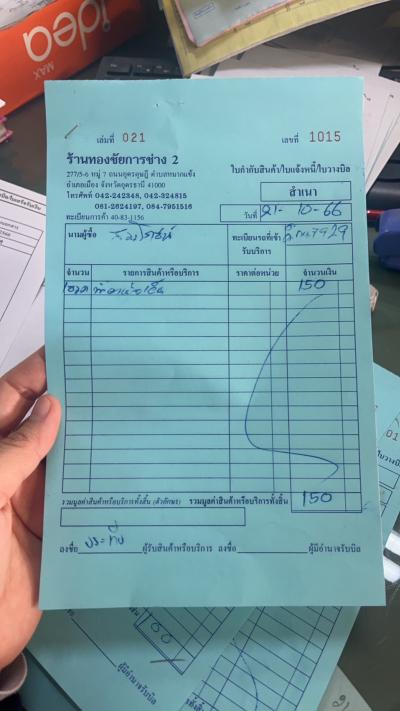 idea
MAX
เล่มที่ 021 เลขที่ 1015
ร้านทองชัยการช่าง 2
277/5-6 หมู่ 7 ถนนอุดรดุษฎี ตำบลหมากแข้ง
อำเภอเมือง จังหวัดอุดรธานี 41000
โทรศัพท์ 042-242348, 042-324815
081-2624197, 084-7951516
ทะเบียนการค้า 40-83-1156
ใบกำกับสินค้า/ใบแจ้งหนี้/ใบวางบิล
สำเนา
วันที่ 21-10-66
นามผู้ซื้อ
ทะเบียนรถที่เข้ารับบริการ
จำนวน รายการสินค้าหรือบริการ ราคาต่อหน่วย จำนวนเงิน
150
รวมมูลค่าสินค้าหรือบริการทั้งสิ้น (ตัวอักษร) รวมมูลค่าสินค้าหรือบริการทั้งสิ้น 150
ลงชื่อ ประทีป ผู้รับสินค้าหรือบริการ ลงชื่อ ผู้มีอำนาจรับบิล
ผู้มีอำนาจรับบิล